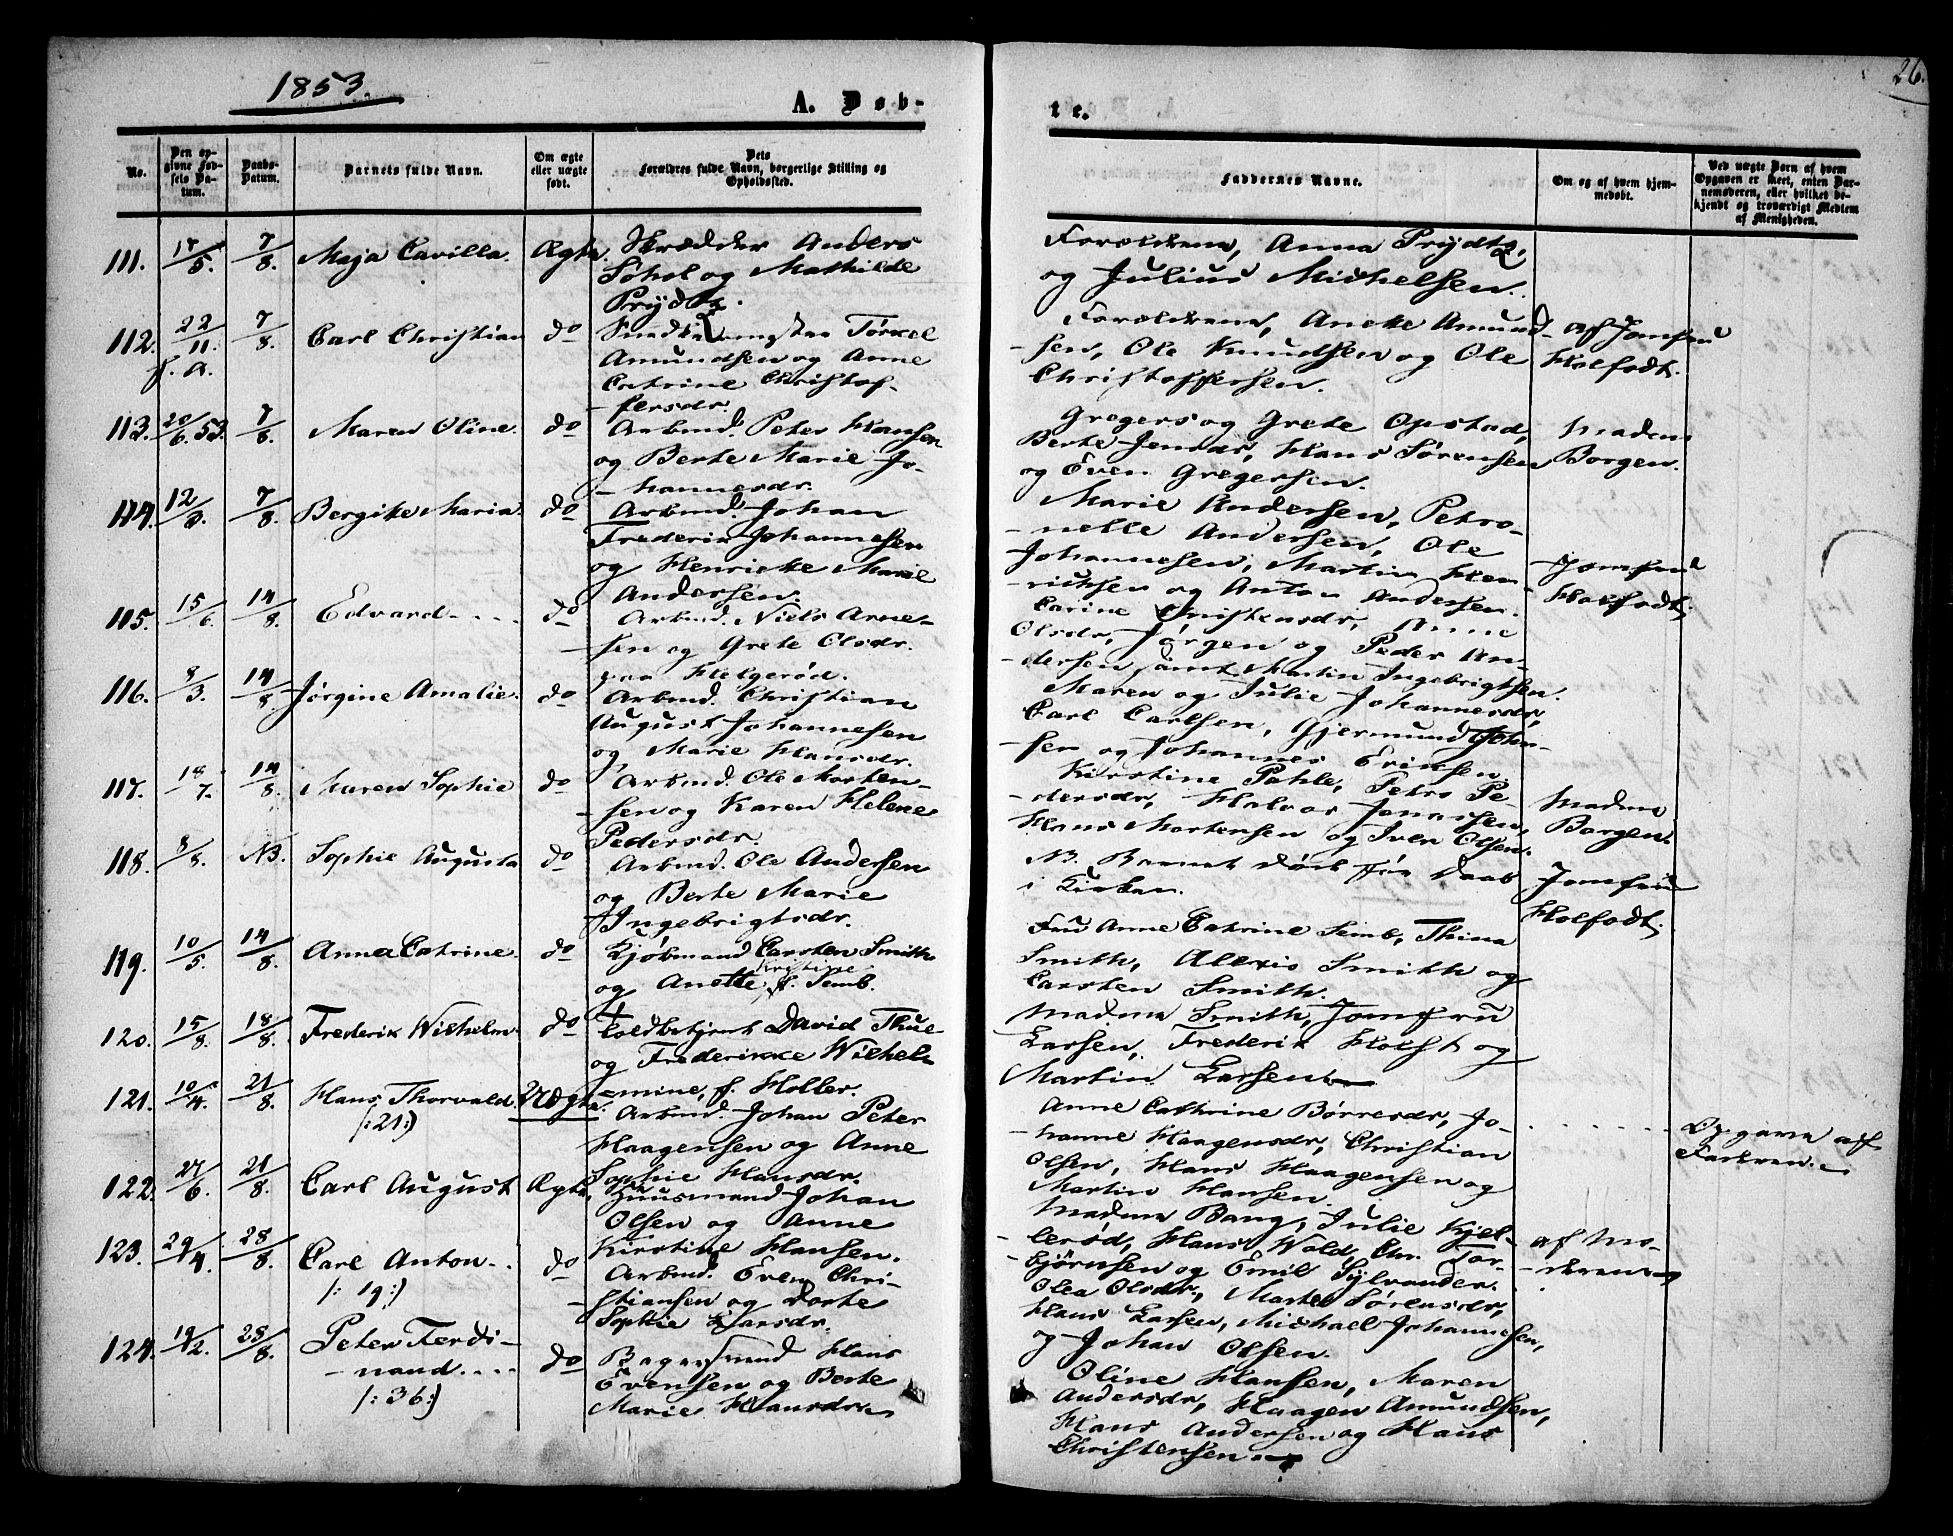 1853.
26.
A. Døb-
te.
No.
Den opgivne Fødsels Datum.
Daabs-Datum.
Barnets fulde Navn.
Om ægte eller uægte født.
Dets Forældres fulde Navn, borgerlige Stilling og Opholdssted.
Faddernes Navne.
Om og af hvem hjemmedøbt.
Ved uægte Børn af hvem Opgaven er skeet, enten Barnemoderen, eller hvilket bekjendt og troværdigt Medlem af Menigheden.
111. 17/5. 7/8. Maja Cavilla. Ægte.
Skrædder Anders
Sohol og Mathilde
Prydtz.
Forældrene, Anna Prydtz,
og Julius Michelsen.
112. 22/11. f. a. 7/8. Carl Christian do
Torkel
Amundsen og Anne
Catrine Christof-
fersdr.
Forældrene, Aneke Amund-
sen, Ole Knudsen og Ole
Christoffersen.
af Jomfru
Holfodt.
113. 20/6. 53. 7/8. Maren Oline. do
Arbmd. Peter Hansen
og Berte Marie Jo-
hannesdr.
Gregers og Grete Opstad,
Berte Jensdr, Hans Sørensen
og Even Gregersen.
Madm
Borgen.
114. 12/3. 7/8. Bergitte Maria. do
Arbmd. Johan
Frederik Johannesen
og Henrikke Marie
Andersen.
Marie Andersen, Petro-
nelle Andersen, Ole
Johannesen, Martin Hen
riksen og Anton Andersen.
Jomfru
Holfodt.
115. 15/6. 14/8. Edvard- . . . . do
Arbmd. Niels Arne-
sen og Grete Olsdr.
paa Helgerød.
Carine Cristensdr, Anne
Olsdr, Jørgen og Peder An-
dersen samt Martin Ingebrigtsen.
116. 8/3. 14/8. Jørgine Amalie. do
Arbmd. Christian
August Johannesen
og Marie Hansdr.
Maren og Julie Johannesdr,
Carl Carlsen, Gjermund John-
sen og Johannes Eriksen.
117. 18/7. 14/8. Maren Sophie do
Arbmd. Ole Morten-
sen og Karen Helene
Pedersdr.
Kirstine Pahle, Petra Pe-
dersdr, Halvor Jonassen,
Hans Mortensen og Iver Olsen.
Madm
Borgen.
118. 8/8. NB. Sophie Augusta do
Arbmd. Ole Andersen
og Berte Marie
Ingebrigtsdr.
NB. Barnet døde før Daab
i Kirken.
Jomfru
Holfodt.
119. 10/5. 14/8. Anna Catrine. do
Kjøbmand Carsten Smith
og Anette Kristine f. Semb.
Frue Anne Catrine Semb, Thina
Smith, Alexis Smith og
Carsten Smith.
120. 15/8. 18/8. Frederik Wilhelm. do
Toldbetjent David Thue
og Frederikke Wilhel-
mine, f. Holler.
Madm Smith, Jomfru
Larsen, Frederik Holst og
Martin Larsen.
121. 10/4. 21/8. Hans Thorvald. Uægte.
/:21:)
Arbmd. Johan Peter
Haagensen og Anne
Sophie Hansdr.
Anne Cathrine Børresdr, Jo-
hanne Haagensdr, Christian
Olsen, Hans Haagensen og
Martin Hansen.
Opgave af
Faderen.
122. 27/6. 21/8. Carl August Ægte.
Huusmand Johan
Olsen og Anne
Kirstine Hansen.
Madm Bang, Julie Kjel-
lerød, Hans Wold, Chr. Tor-
bjørnsen og Emil Sylvander.
af Mo-
deren.
123. 29/4. 28/8. Carl Anton. . do
/: 19:)
Arbmd. Even Chri-
stiansen og Dorte
Sophie Larsdr.
Olea Olsdr, Marte Sørensdr,
Hans Larsen, Michael Johannesen,
og Johan Olsen.
124. 19/2. 28/8. Peter Ferdi-
nand. . . . do
/: 36:)
Bagersvend Hans
Evensen og Berte
Marie Hansdr.
Oline Hansen, Maren
Andersdr, Haagen Amundsen,
Hans Andersen og Hans
Christensen.